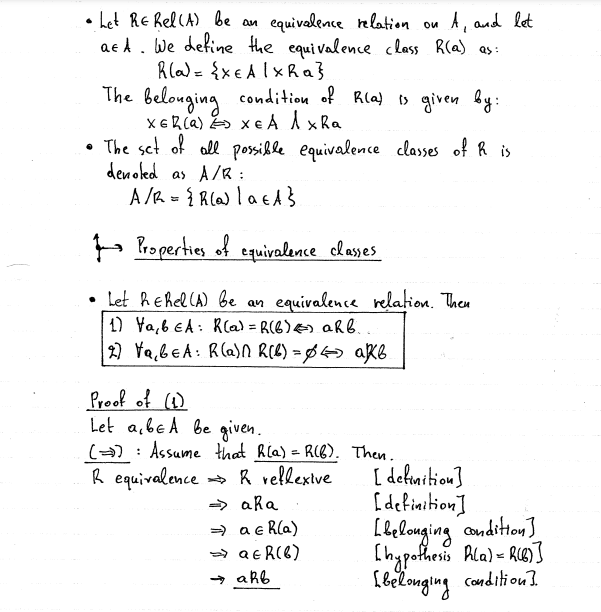 • Let R∈Rel(A) be an equivalence relation on A, and let
a∈A. We define the equivalence class R(a) as:
R(a) = {x∈A | xRa}
The belonging condition of R(a) is given by:
x∈R(a) ⇔ x∈A ∧ xRa
• The set of all possible equivalence classes of R is
denoted as A/R:
A/R = {R(a) | a∈A}
Properties of equivalence classes
• Let R∈Rel(A) be an equivalence relation. Then
1) ∀a,b∈A: R(a) = R(b) ⇔ aRb.
2) ∀a,b∈A: R(a)∩R(b) = ∅ ⇔ aR̸b
Proof of (1)
Let a,b∈A be given.
(⇒): Assume that R(a) = R(b). Then.
R equivalence ⇒ R reflexive [definition]
⇒ aRa [definition]
⇒ a∈R(a) [belonging condition]
⇒ a∈R(b) [hypothesis R(a) = R(b)]
→ aRb [belonging condition].